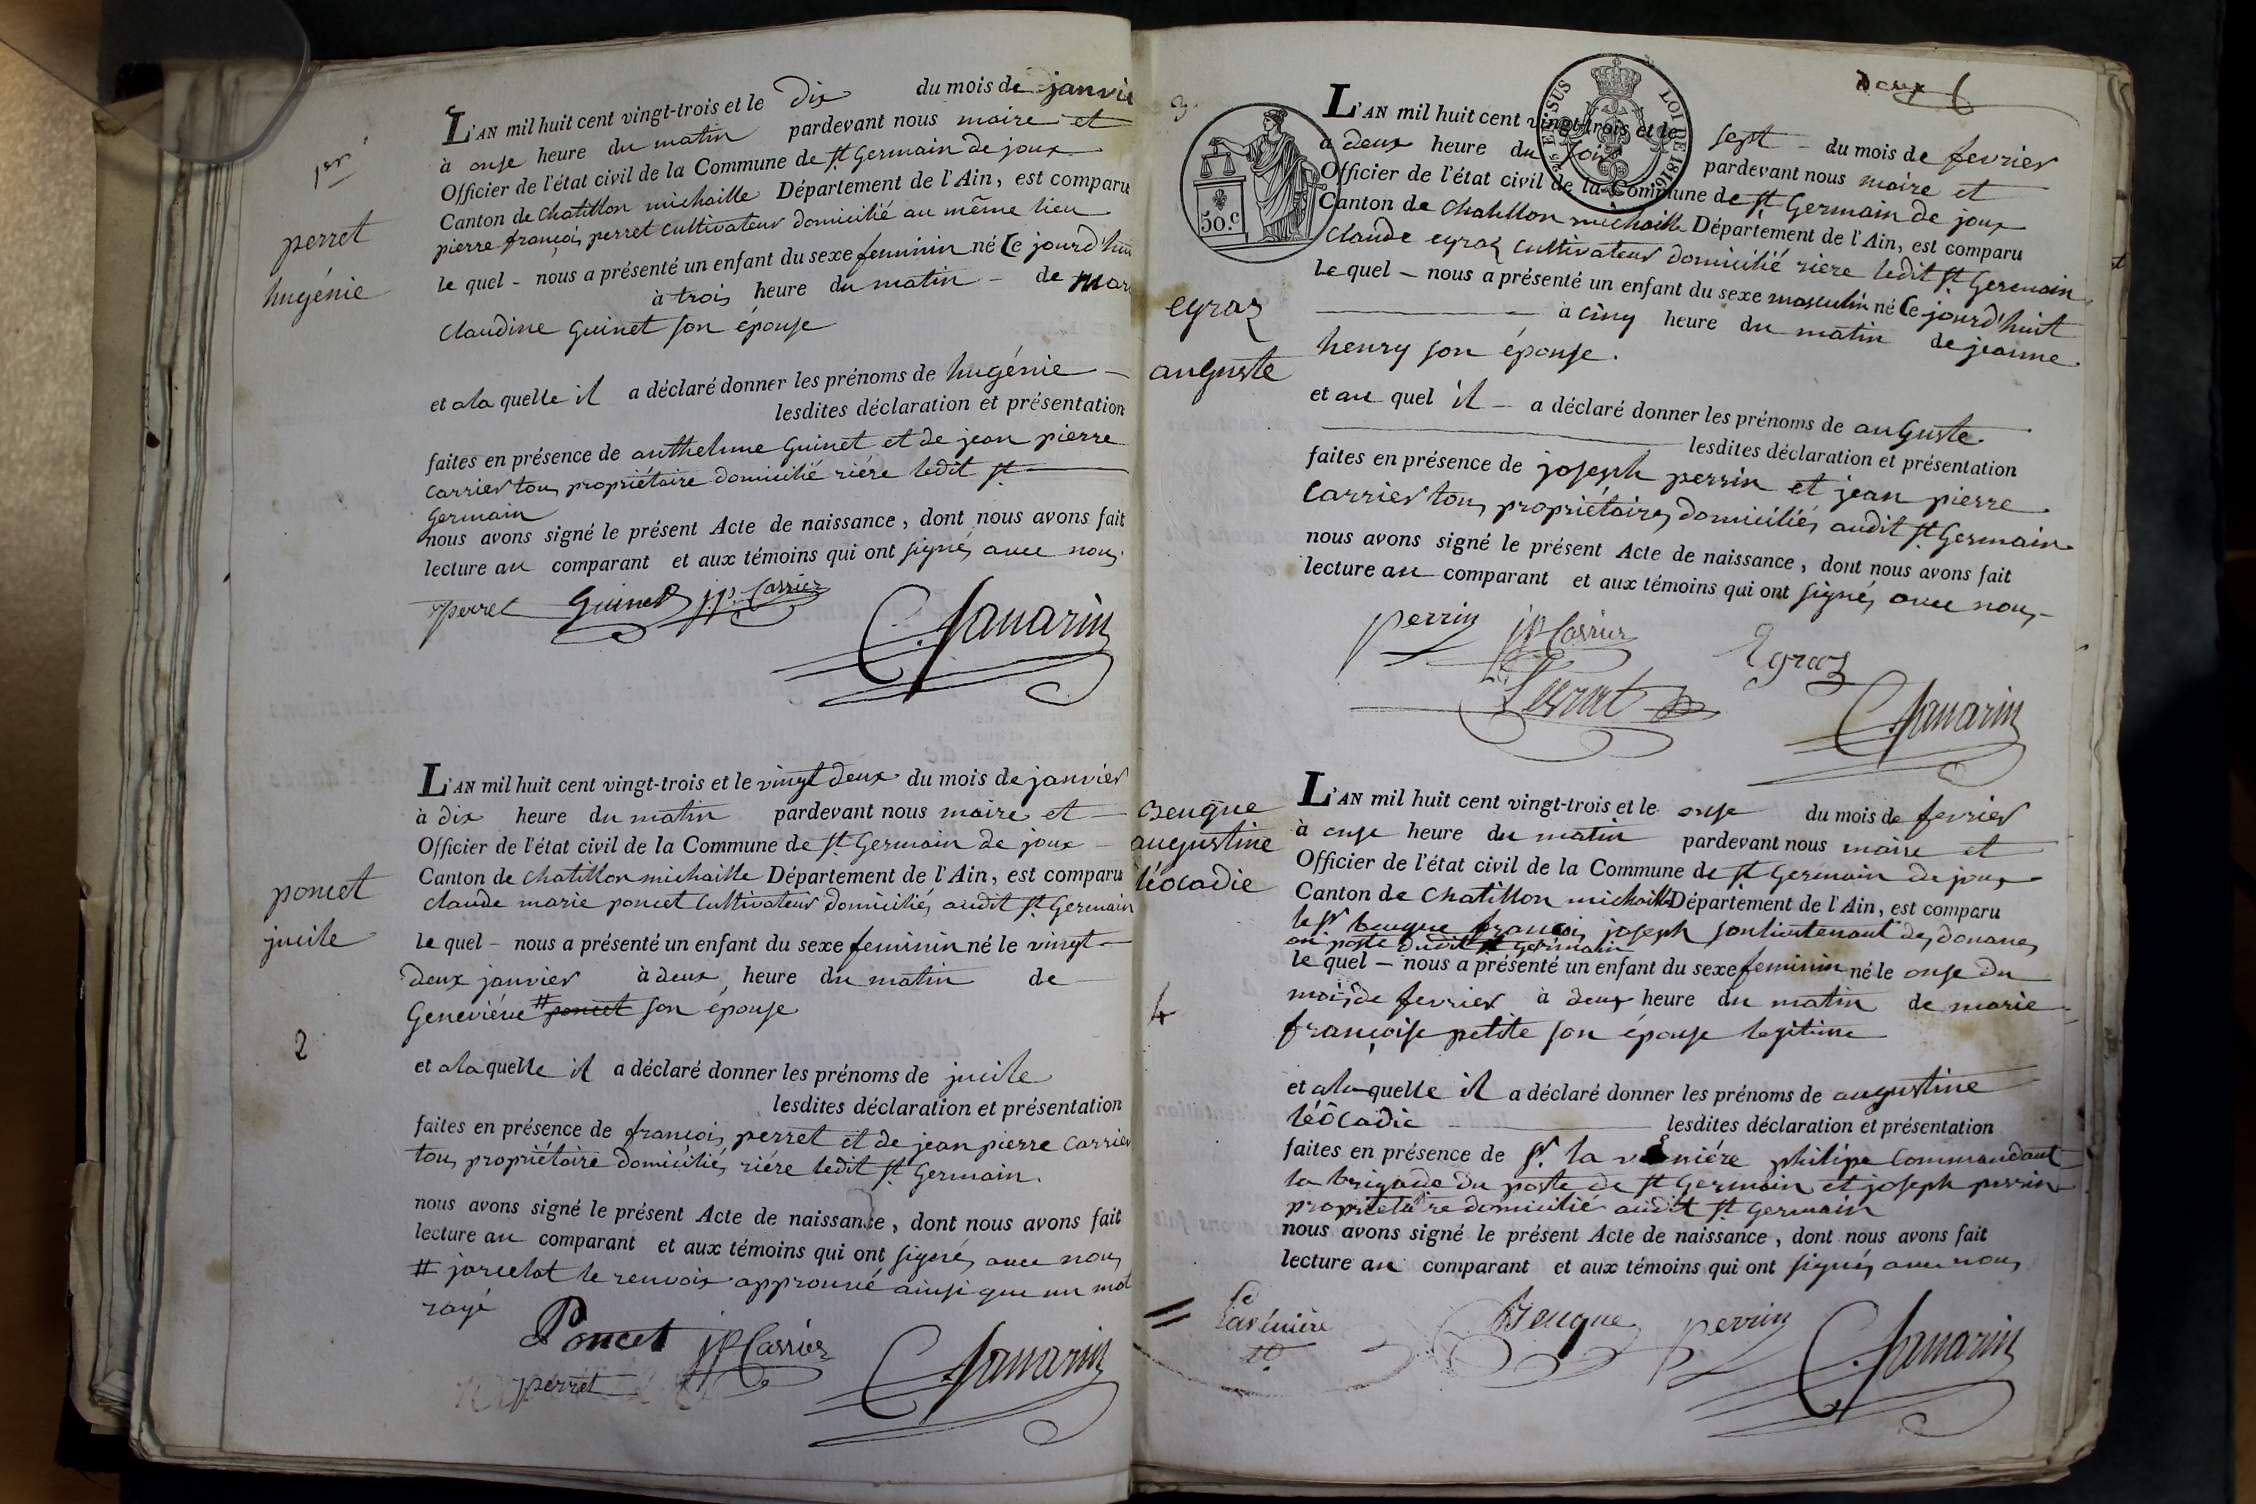 1er
perret
hugénie
L'AN mil huit cent vingt-trois et le dix du mois de janvie
à onse heure du matin pardevant nous maire et
Officier de l'état civil de la Commune de st Germain de joux
Canton de chatillon michaille Département de l'Ain, est comparu
pierre françois perret cultivateur domicilié au même lieu
le quel - nous a présenté un enfant du sexe feminin né Ce jourd'hui
à trois heure du matin - de mari
Claudine Guinet son épouse
et a la quelle il a déclaré donner les prénoms de hugénie
lesdites déclaration et présentation
faites en présence de anthelme Guinet et de jean pierre
Carrier tous propriétaire domicilié riére ledit st
Germain
nous avons signé le présent Acte de naissance, dont nous avons fait
lecture au comparant et aux témoins qui ont signés avec nous
perret Guinet jp Carrier
C. Savarin
poncet
jucile
2
L'AN mil huit cent vingt-trois et le vingt deux du mois de janvier
à dix heure du matin pardevant nous maire et
Officier de l'état civil de la Commune de st Germain de joux
Canton de chatillon michaille Département de l'Ain, est comparu
claude marie poncet cultivateur domiciliés audit st Germain
le quel - nous a présenté un enfant du sexe feminin né le vingt
deux janvier à deux heure du matin de
Geneviéve # poncet son épouse
et a la quelle il a déclaré donner les prénoms de jucile
lesdites déclaration et présentation
faites en présence de françois perret et de jean pierre Carrier
tous propriétaire domiciliés riére ledit st Germain.
nous avons signé le présent Acte de naissance, dont nous avons fait
lecture au comparant et aux témoins qui ont signés avec nous
# jarcelot le renvois approuvé ainsi que un mot
rayé
Poncet jp Carrier
perret
C. Savarin
deux
3
EN SUS LOI DE 1816
50.c
egraz
auguste
L'AN mil huit cent vingt-trois et le sept - du mois de fevrier
à deux heure du soir pardevant nous maire et
Officier de l'état civil de la Commune de st Germain de joux
Canton de chatillon michaille Département de l'Ain, est comparu
Claude egraz cultivateur domicilié riere ledit st Germain
le quel - nous a présenté un enfant du sexe masculin né Ce jourd'huit
à cinq heure du matin de jeanne
henry son épouse.
et au quel il - a déclaré donner les prénoms de auguste
lesdites déclaration et présentation
faites en présence de joseph perrin et jean pierre
Carrier tous propriétaires domiciliés audit st Germain
nous avons signé le présent Acte de naissance, dont nous avons fait
lecture au comparant et aux témoins qui ont signés avec nous
perrin jp Carrier Egraz
C. Savarin
Beugne
augustine
léocadie
4
L'AN mil huit cent vingt-trois et le onse du mois de fevrier
à onse heure du matin pardevant nous maire et
Officier de l'état civil de la Commune de st Germain de joux
Canton de chatillon michaille Département de l'Ain, est comparu
le sr beugne françois joseph souslieutenant des douanes
au poste dudit st Germain
le quel - nous a présenté un enfant du sexe feminin né le onse du
mois de fevrier à deux heure du matin de marie
françoise petite son épouse legitime
et a la quelle il a déclaré donner les prénoms de augustine
léôcadie lesdites déclaration et présentation
faites en présence de sr. la veniére philipe commandant
la brigade du poste de st Germain et joseph perrin
proprietaire domicilié audit st Germain
nous avons signé le présent Acte de naissance, dont nous avons fait
lecture au comparant et aux témoins qui ont signés avec nous
Lavénière Beugne perrin
C. Savarin